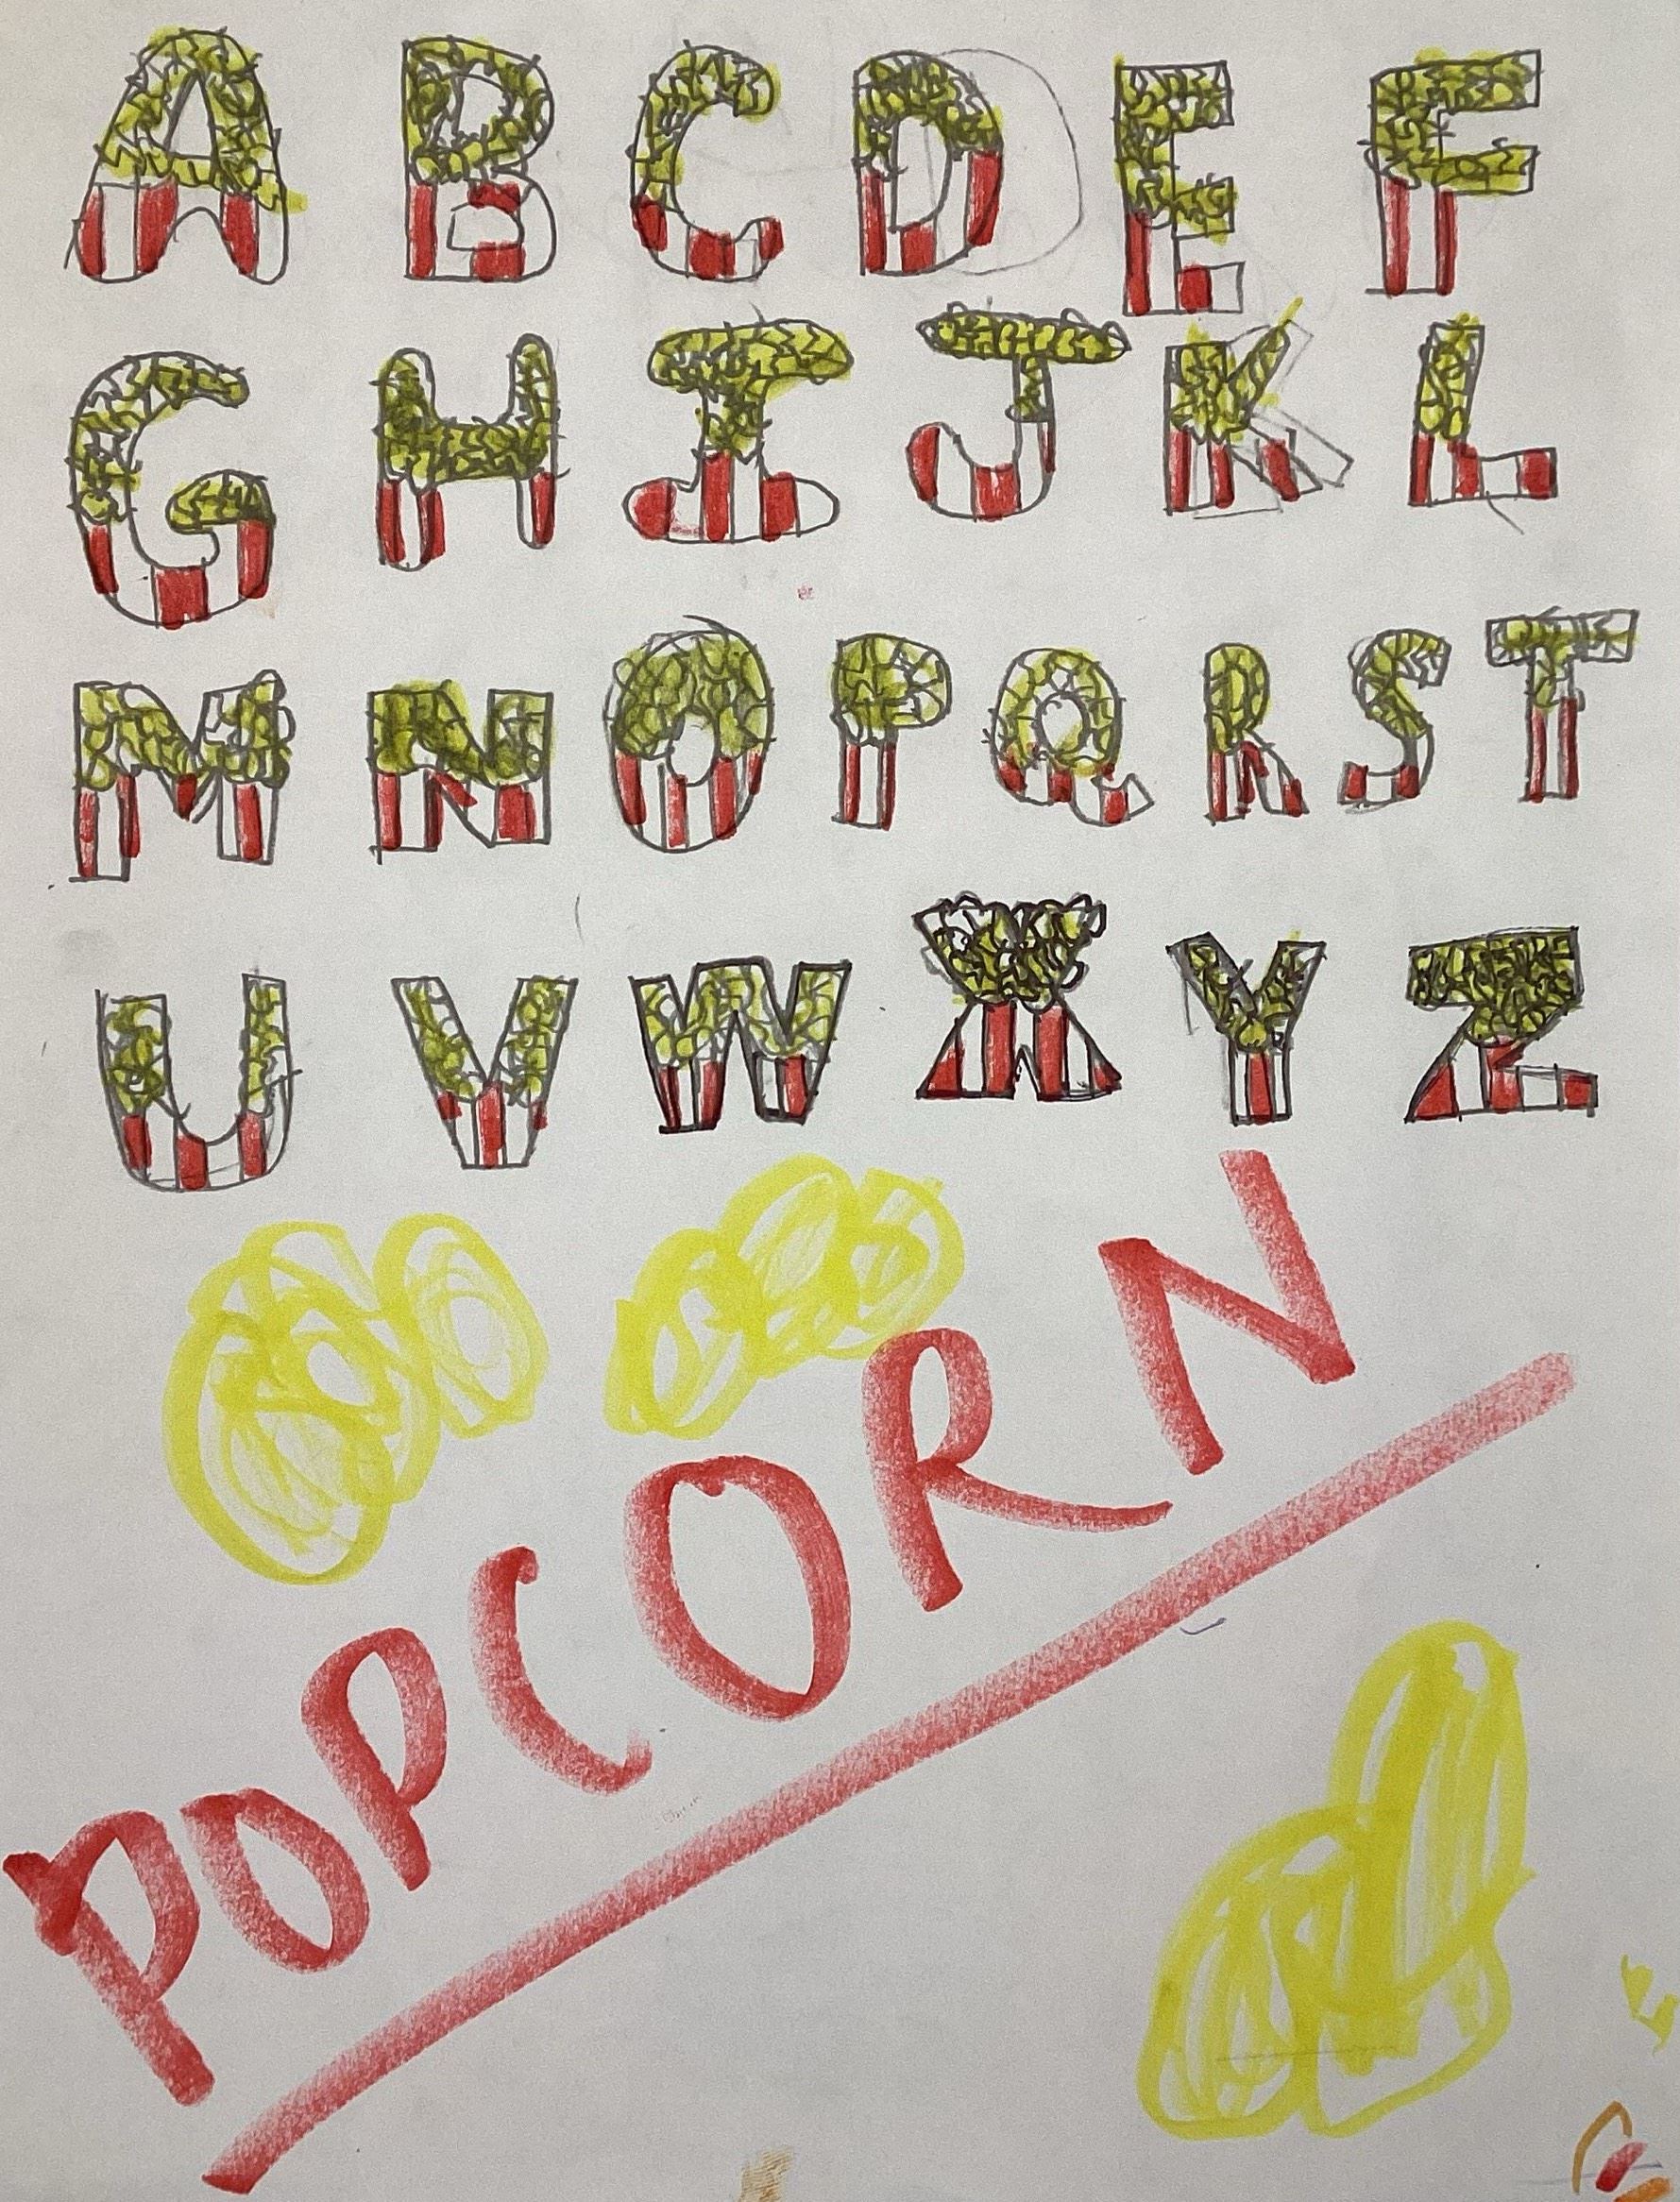 A B C D E F
G H I J K L
M N O P Q R S T
U V W X Y Z
POPCORN